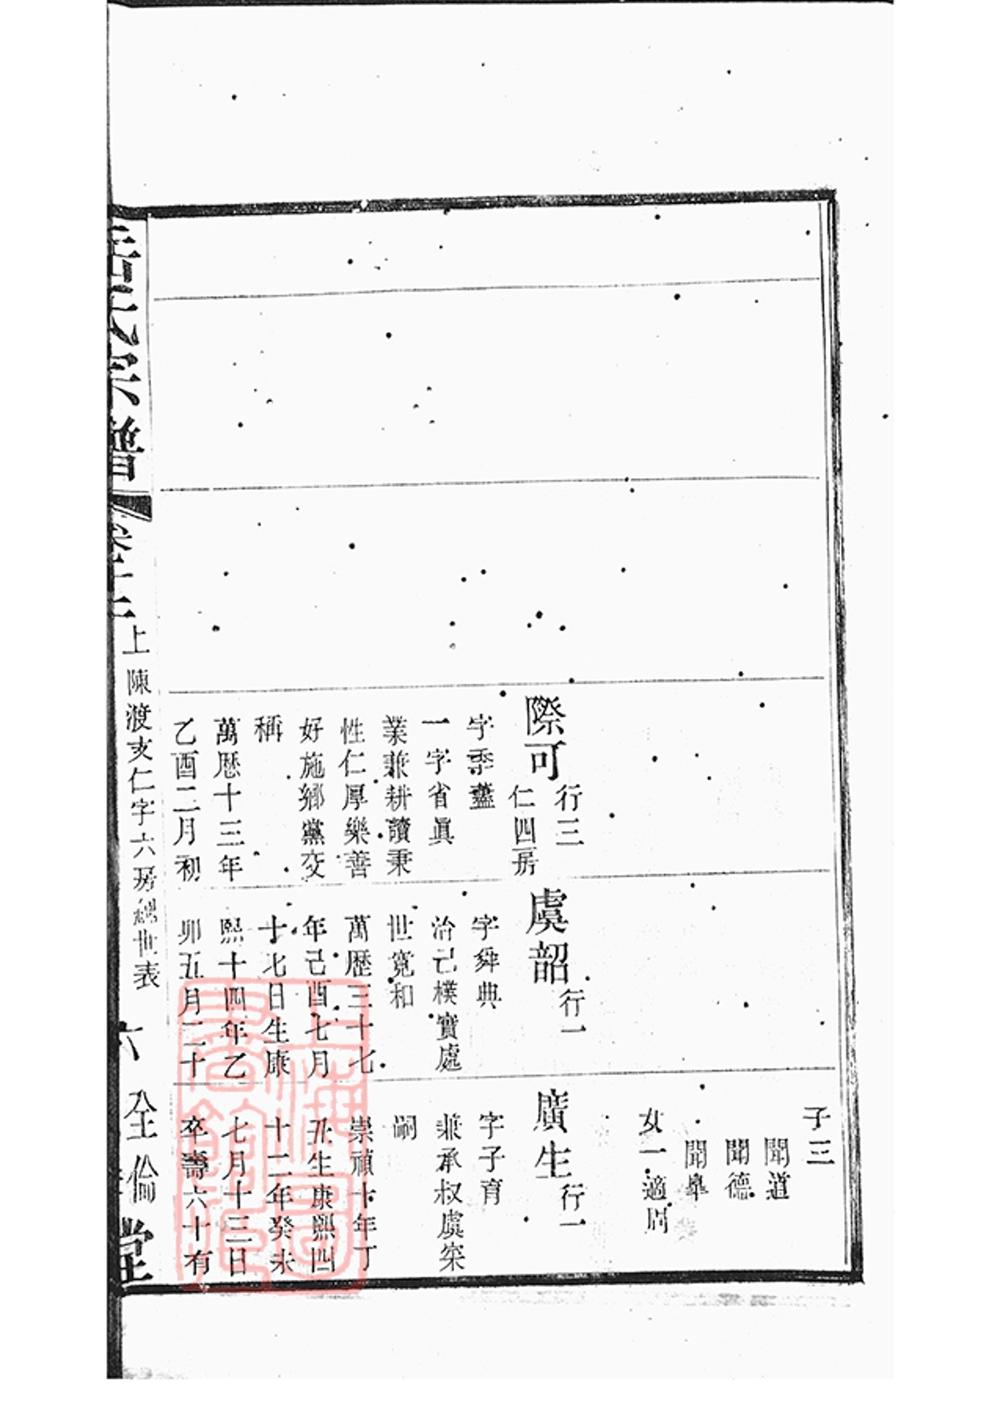 際可
行三
仁四房
字季藎
一字省眞
業兼耕讀秉
性仁厚樂善
好施鄉黨交
稱
萬厯十三年
乙酉二月初
虞韶 行一
字舜典
治己樸實處
世寬和
萬歷三十七
年己酉七月
十七日生康
熙十四年乙
卯五月二十
子三
聞道
聞德
聞皋
女一適周
廣生 行一
字子育
兼承叔虞寀
嗣
崇禎十年丁
丑生康熙四
十二年癸未
七月十三日
卒壽六十有
氏宗譜
上陳渡支仁字六房 世表
六
倫堂
上海圖書館藏